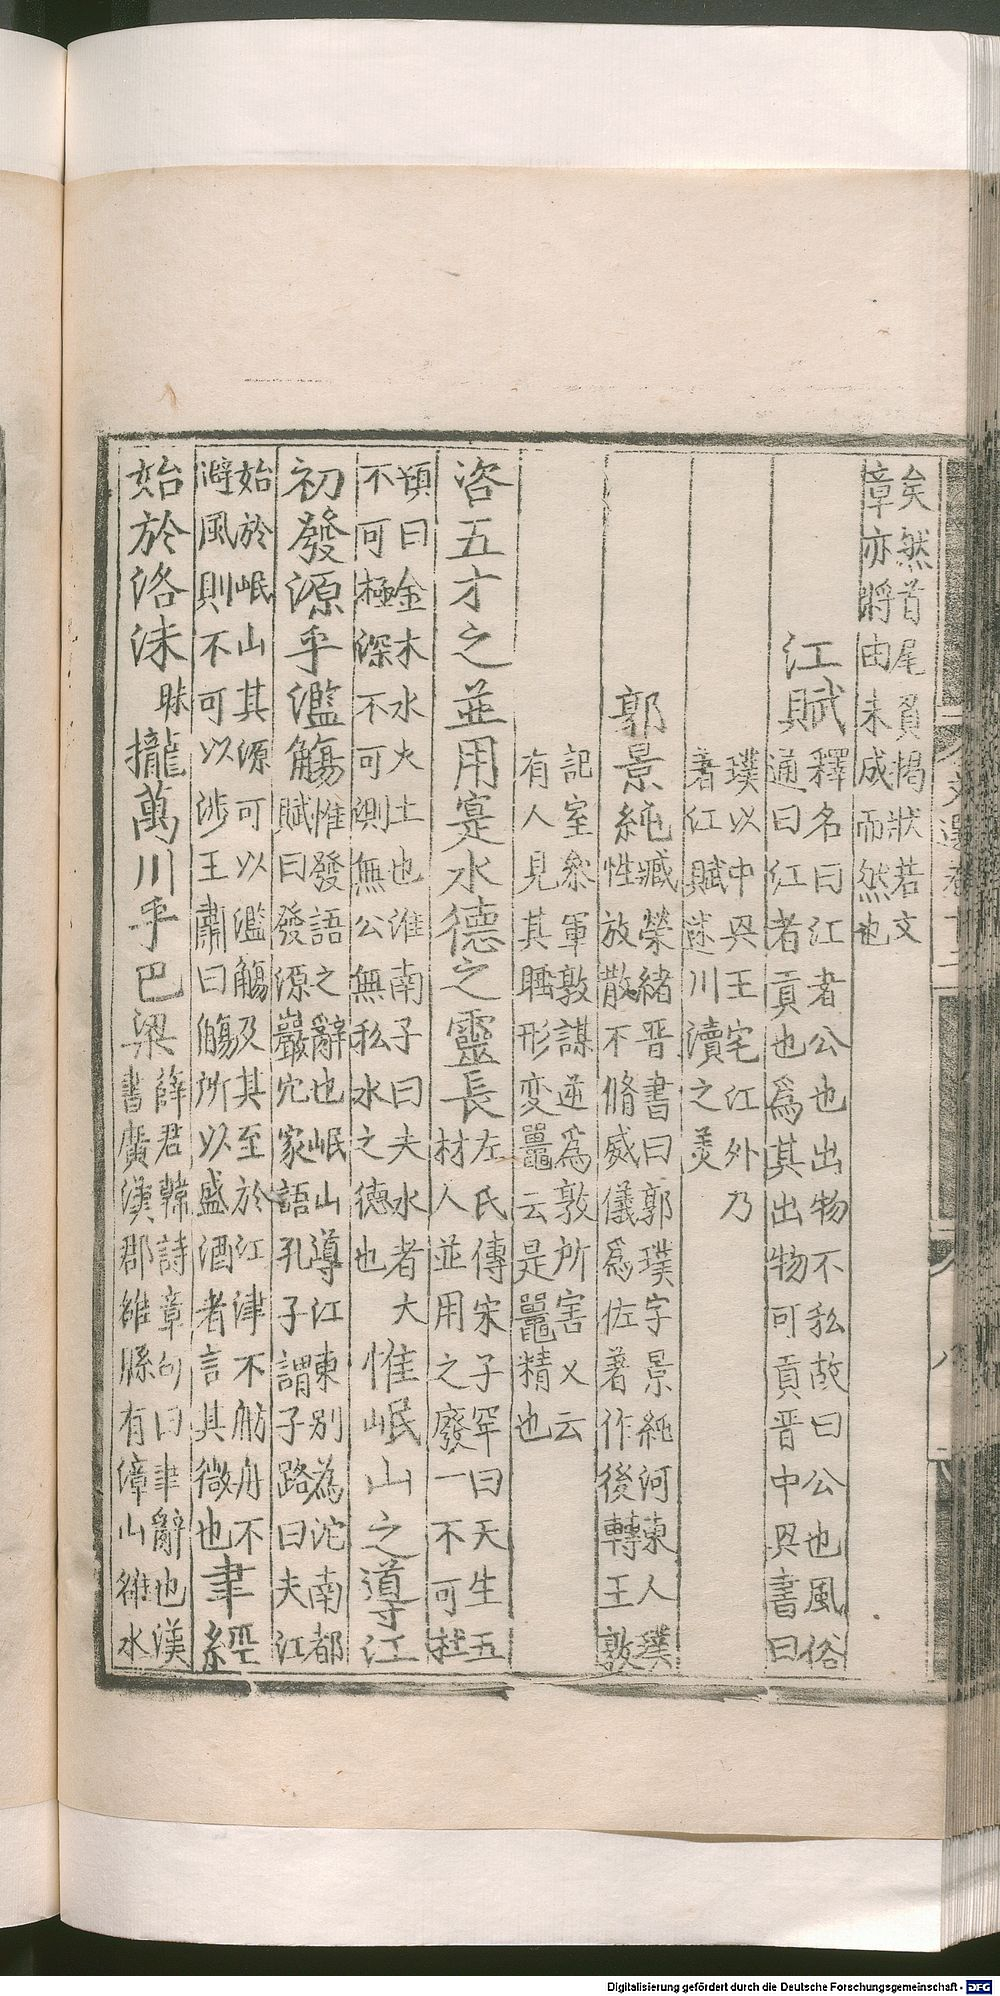 矣然首尾負揭狀若文
章亦將由未成而然也
江賦
釋名曰江者公也出物不私故曰公也風俗
通曰江者貢也為其出物可貢晉中興書曰
璞以中興王宅江外乃
著江賦述川瀆之美
郭景純
臧榮緒晉書曰郭璞字景純河東人璞
性放散不脩威儀為佐著作後轉王敦
記室叅軍敦謀逆為敦所害又云
有人見其睡形变鼉云是鼉精也
咨五才之並用寔水德之靈長
左氏傳宋子罕曰天生五
材人並用之廢一不可杜
頊曰金木水火土也淮南子曰夫水者大
不可極深不可測無公無私水之德也
惟岷山之導江
初發源乎濫觴
惟發語之辭也岷山導江東别為沱南都
賦曰發源巖穴家語孔子謂子路曰夫江
始於岷山其源可以濫觴及其至於江津不舫舟不
避風則不可以涉王肅曰觴所以盛酒者言其微也
聿經
始於洛沬
昧
攏萬川乎巴梁
薛君韓詩章句曰聿辭也漢
書廣漢郡雒縣有漳山雒水
文選卷十二
八
Digitalisierung gefördert durch die Deutsche Forschungsgemeinschaft - DFG